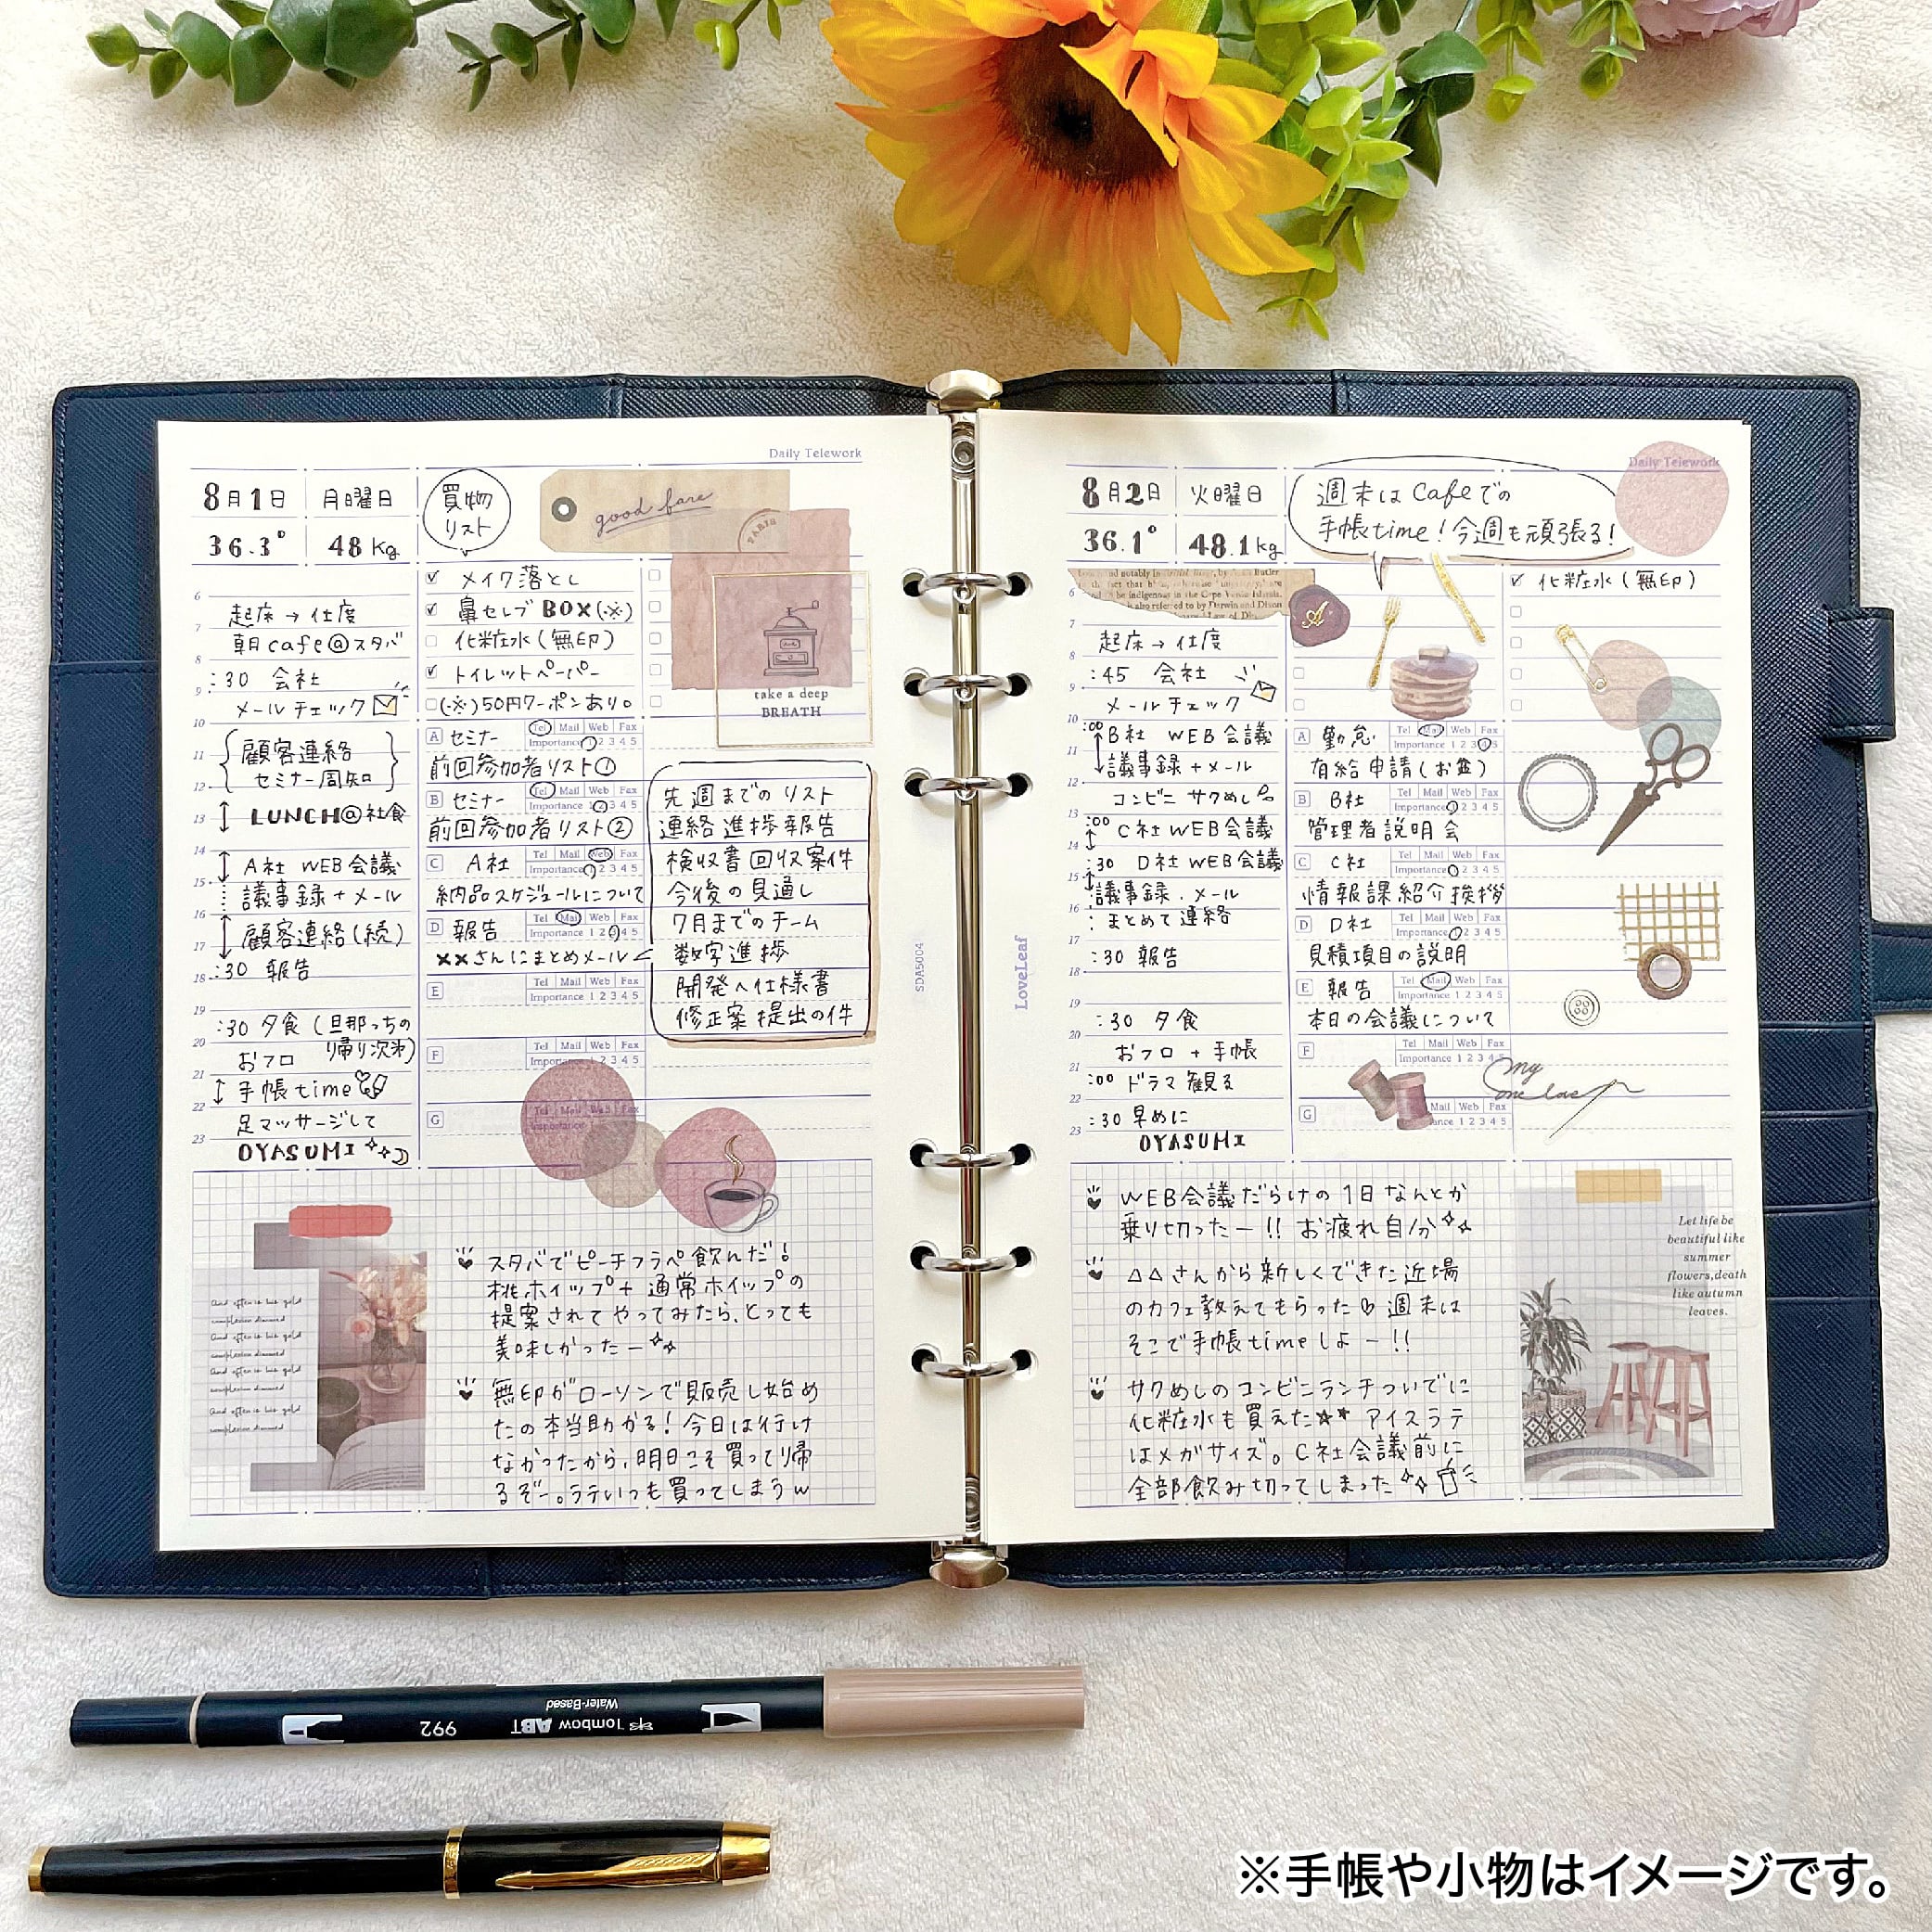 Daily Telework
8月1日 月曜日
36.3° 48kg
買物
リスト
good fare
PARIS
メイク落とし
鼻セレブBOX(※)
化粧水(無印)
トイレットペーパー
(※)50円クーポンあり。
take a deep
BREATH
6
起床→仕度
7
朝cafe@スタバ
8
:30 会社
9
メールチェック
10
顧客連絡
11
セミナー周知
12
LUNCH@社食
13
14
A社 WEB会議
15
議事録+メール
16
顧客連絡(続)
17
18
:30 報告
19
:30 夕食(旦那っちの
帰り次第)
20
おフロ
21
手帳time
22
足マッサージして
23
OYASUMI
A セミナー Tel Mail Web Fax
Importance 1 2 3 4 5
前回参加者リスト①
B セミナー Tel Mail Web Fax
Importance 1 2 3 4 5
前回参加者リスト②
C A社 Tel Mail Web Fax
Importance 1 2 3 4 5
納品スケジュールについて
D 報告 Tel Mail Web Fax
Importance 1 2 3 4 5
××さんにまとめメール
E Tel Mail Web Fax
Importance 1 2 3 4 5
F Tel Mail Web Fax
Importance 1 2 3 4 5
G Tel Mail Web Fax
Importance 1 2 3 4 5
先週までのリスト
連絡進捗報告
検収書回収案件
今後の見通し
7月までのチーム
数字進捗
開発へ仕様書
修正案提出の件
スタバでピーチフラペ飲んだ!
桃ホイップ+通常ホイップの
提案されてやってみたら、とっても
美味しかったー
無印がローソンで販売し始め
たの本当助かる!今日は行け
なかったから、明日こそ買って帰
るぞー。ラテいつも買ってしまうw
SDA5004
LoveLeaf
Daily Telework
8月2日 火曜日
36.1° 48.1kg
週末はcafeでの
手帳time!今週も頑張る!
A
化粧水(無印)
6
7
起床→仕度
8
:45 会社
9
メールチェック
10
:00 B社 WEB会議
11
議事録+メール
12
コンビニ サクめし
13
:00 C社WEB会議
14
:30 D社WEB会議
15
議事録.メール
16
:まとめて連絡
17
:30 報告
18
19
:30 夕食
20
おフロ+手帳
21
:00 ドラマ観る
22
:30 早めに
23
OYASUMI
A 勤怠 Tel Mail Web Fax
Importance 1 2 3 4 5
有給申請(お盆)
B B社 Tel Mail Web Fax
Importance 1 2 3 4 5
管理者説明会
C C社 Tel Mail Web Fax
Importance 1 2 3 4 5
情報課紹介挨拶
D D社 Tel Mail Web Fax
Importance 1 2 3 4 5
見積項目の説明
E 報告 Tel Mail Web Fax
Importance 1 2 3 4 5
本日の会議について
F Tel Mail Web Fax
Importance 1 2 3 4 5
G Mail Web Fax
1 2 3 4 5
my
one love
WEB会議だらけの1日なんとか
乗り切ったー!!お疲れ自分
△△さんから新しくできた近場
のカフェ教えてもらった♡週末は
そこで手帳timeしよー!!
サクめしのコンビニランチついでに
化粧水も買えた★★ アイスラテ
はメガサイズ。C社会議前に
全部飲み切ってしまった
Let life be
beautiful like
summer
flowers,death
like autumn
leaves.
Tombow ABT
Water-Based
992
※手帳や小物はイメージです。